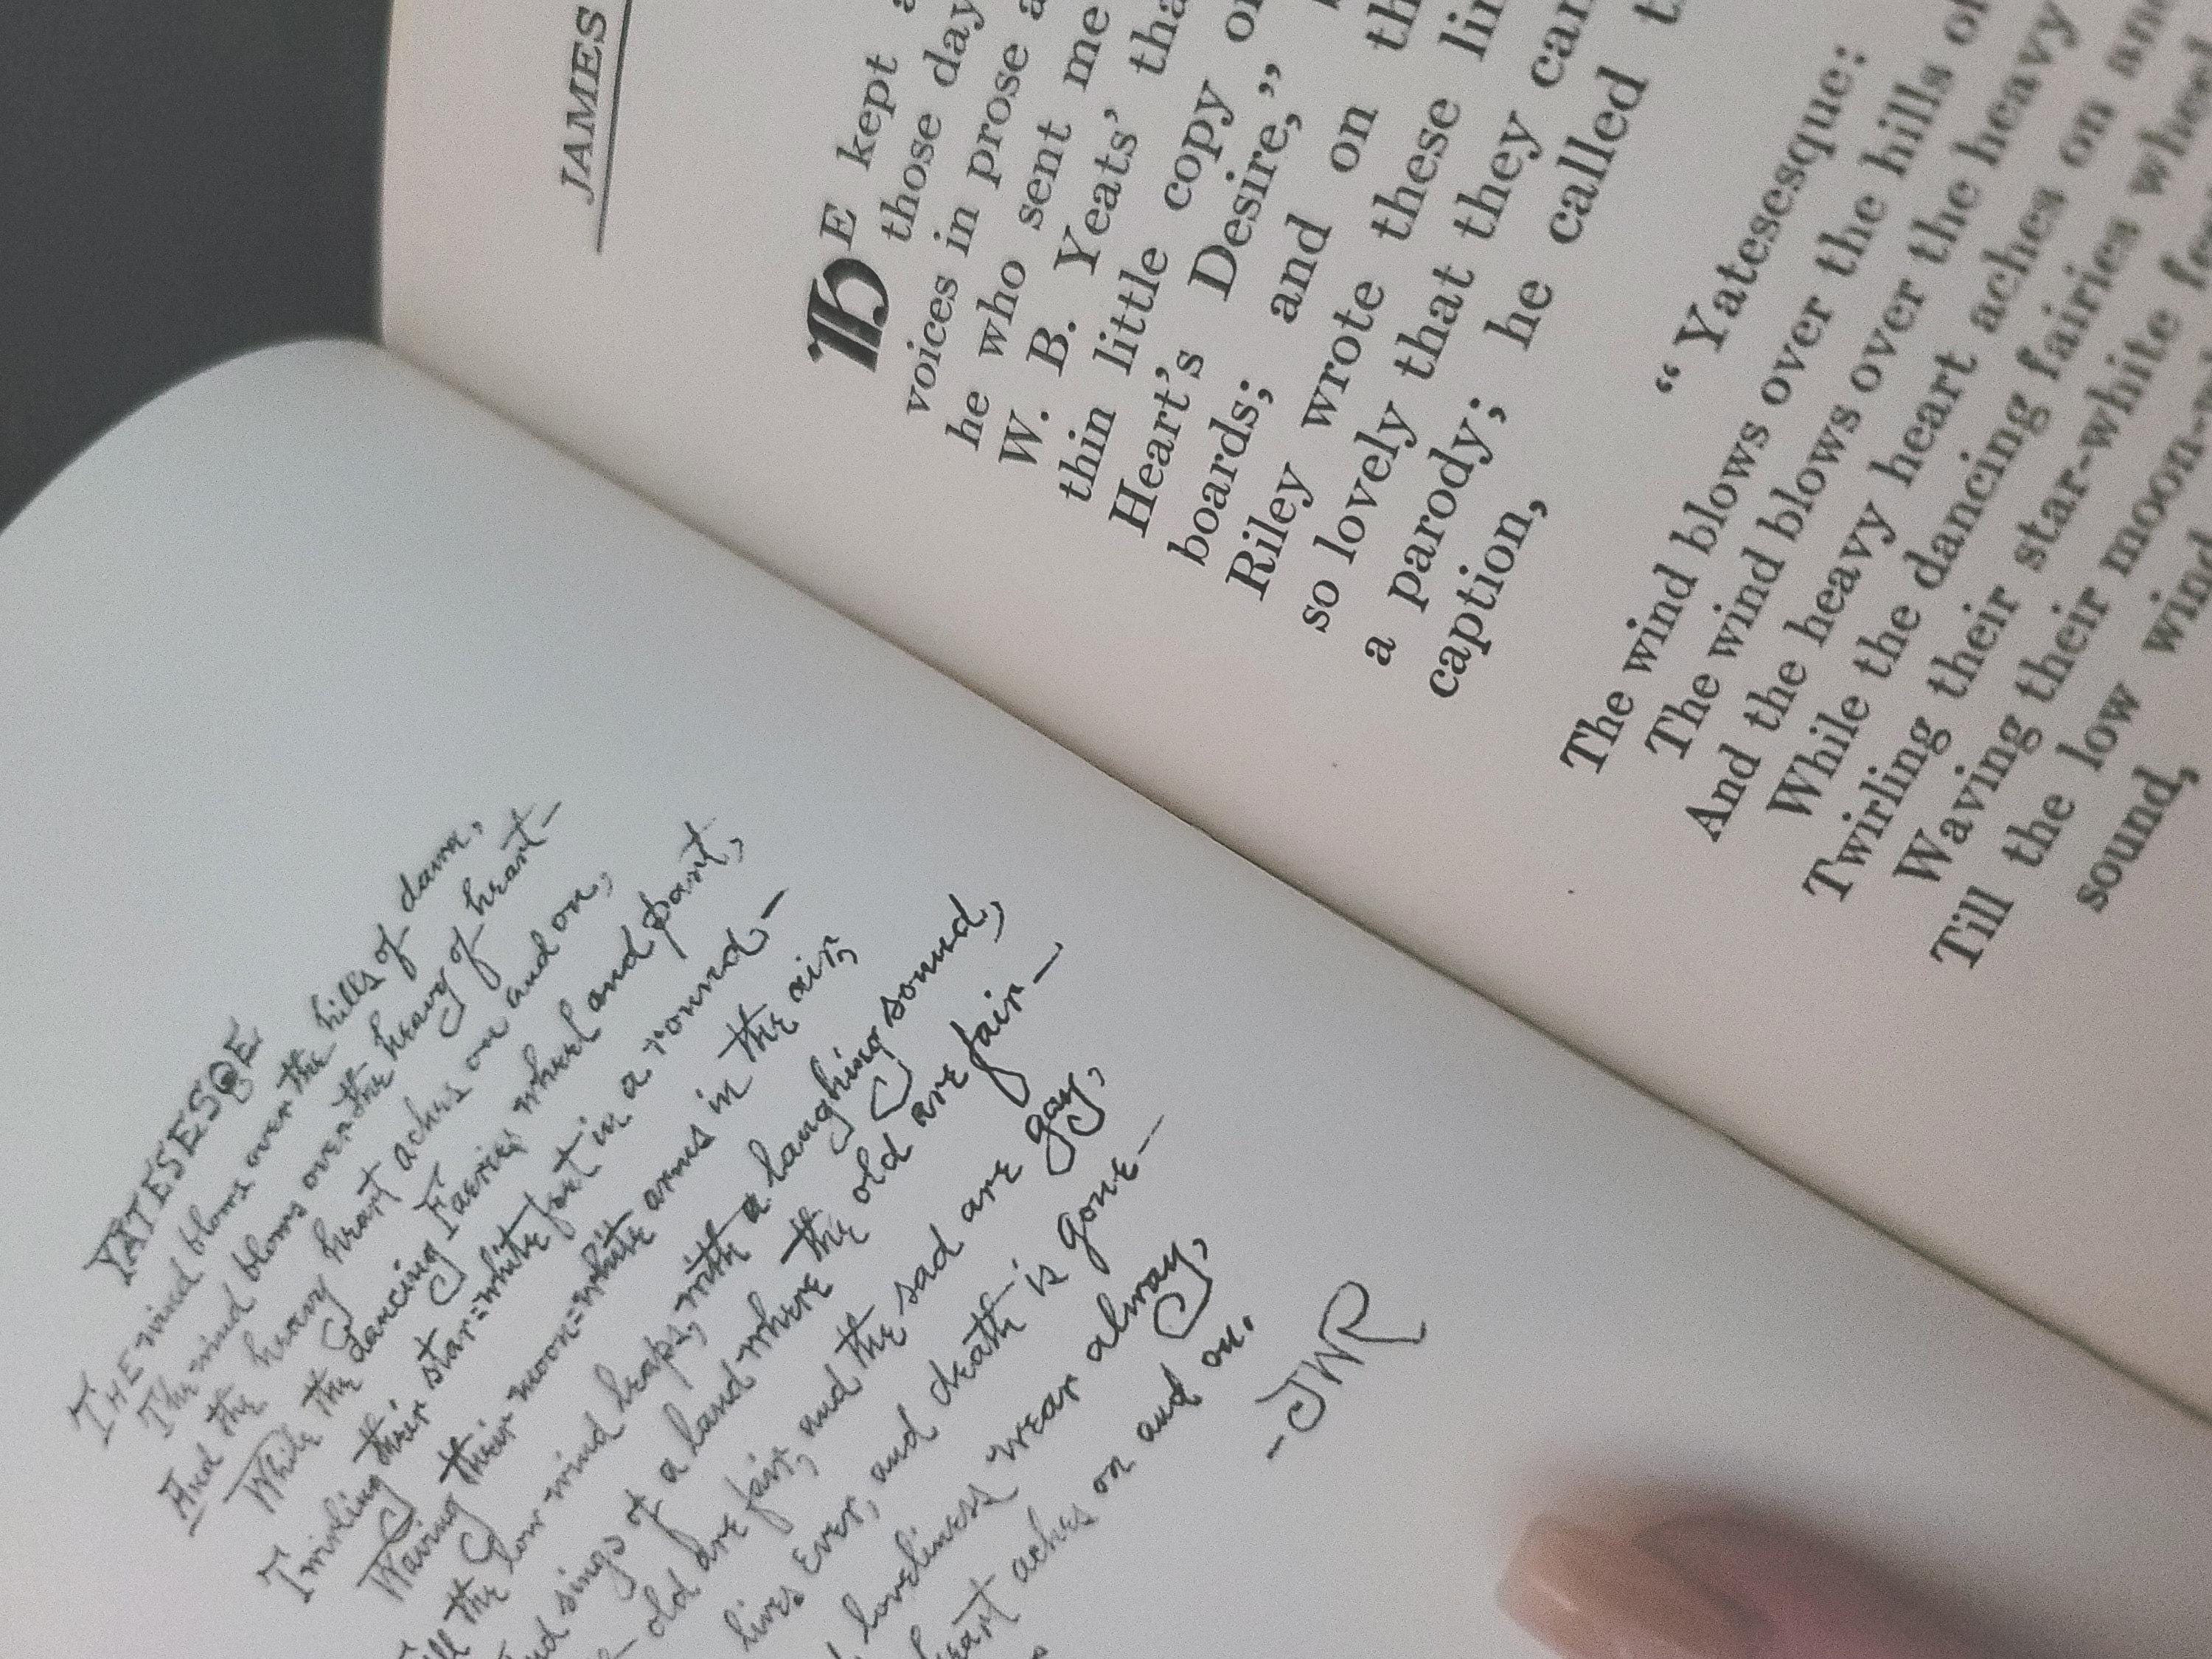 YATESESQE
THE wind blows over the hills of dawn,
The wind blows over the heavy of heart—
And the heavy heart aches on and on,
While the dancing Faeries wheel and part,
Twirling their star=white feet in a round—
Waving their moon=white arms in the air,
the low wind heaps, with a laughing sound,
sings of a land where the old are fair—
old are fair, and the sad are gay,
lives ever, and death is gone—
loveliness wear alway,
aches on and on.
-JWR
JAMES
HE kept
those day
voices in prose
he who sent me
W. B. Yeats' tha
thin little copy
Heart's Desire,"
boards; and on th
Riley wrote these lin
so lovely that they can
a parody; he called t
caption,
"Yatesesque:
The wind blows over the hills of
The wind blows over the heavy
And the heavy heart aches on an
While the dancing fairies wheel
Twirling their star-white fe
Waving their moon-w
Till the low wind
sound,